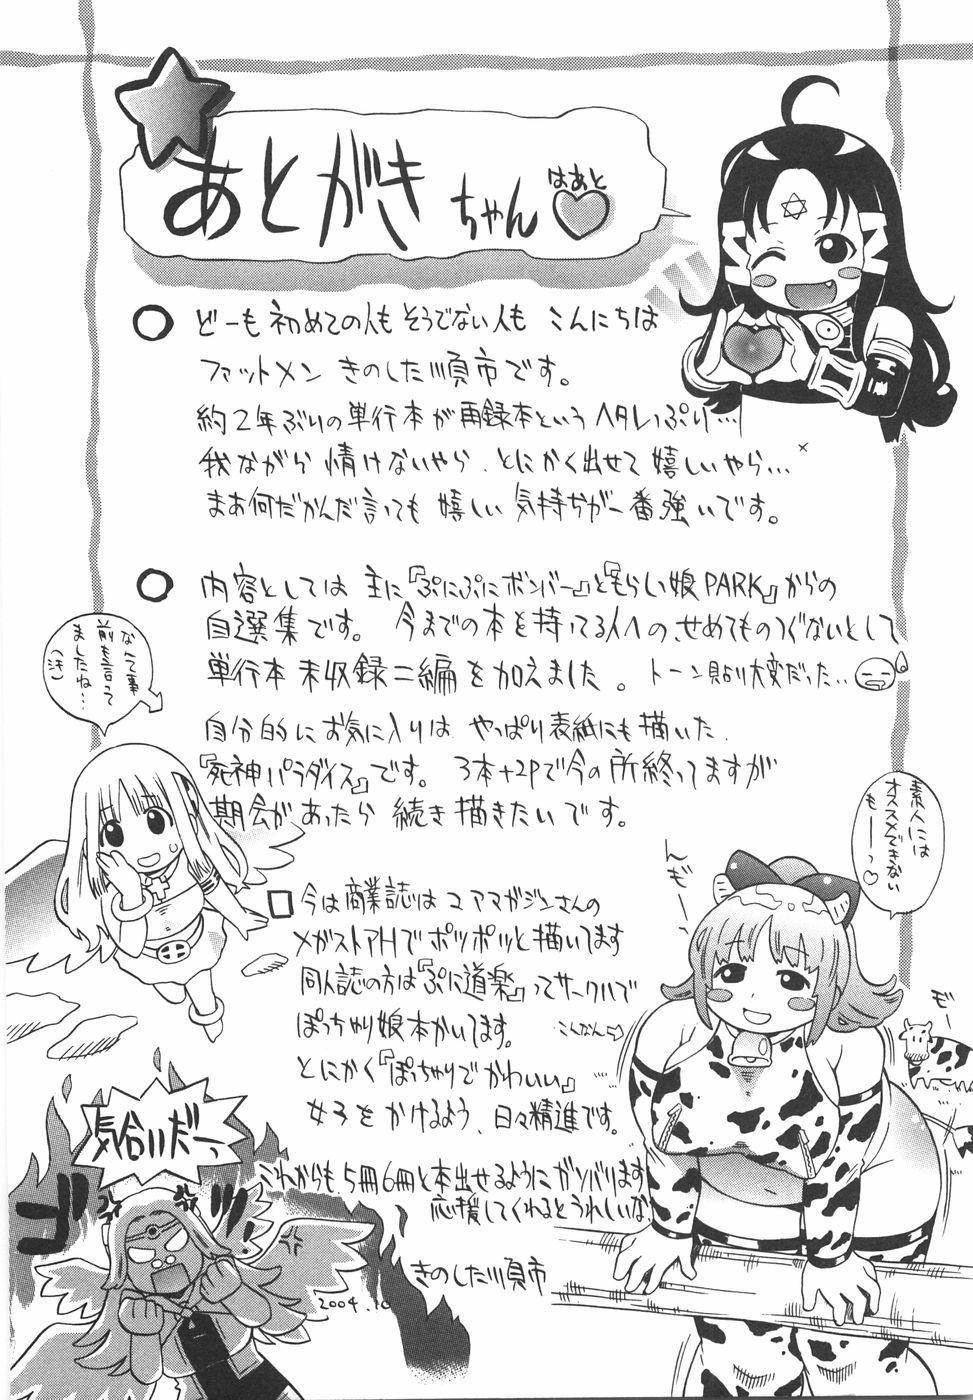 あとがきちゃん
はあと
どーも初めての人もそうでない人も こんにちは
ファットメン きのした順市です。
約2年ぶりの単行本が再録本というヘタレっぷり…
我ながら情けないやら、とにかく出せて嬉しいやら…
まあ何だかんだ言っても嬉しい気持ちが一番強いです。
内容としては主に『ぷにぷにボンバー』と『もらい娘PARK』からの
自選集です。今までの本を持ってる人への、せめてものつぐないとして
単行本未収録二編を加えました。トーン貼り大変だった‥
自分的にお気に入りは やっぱり表紙にも描いた
『死神パラダイス』です。3本+2Pで今の所終ってますが
期会があったら続き描きたいです。
なんて事
前も言って
ましたね…
(汗)
素人には
オススメできない
もーーっ♡
んぎー
モー
今は商業誌はコアマガジンさんの
メガストアHでポツポツと描いてます
同人誌の方は『ぷに道楽』ってサークルで
ぽっちゃり娘本かいてます。
こんなん⇨
とにかく『ぽっちゃりでかわいい』
女子をかけるよう、日々精進です。
これからも5冊6冊と本出せるようにガンバります
応援してくれるとうれしいな
きのした順市
2004.10
気合いだーっ
ゴ